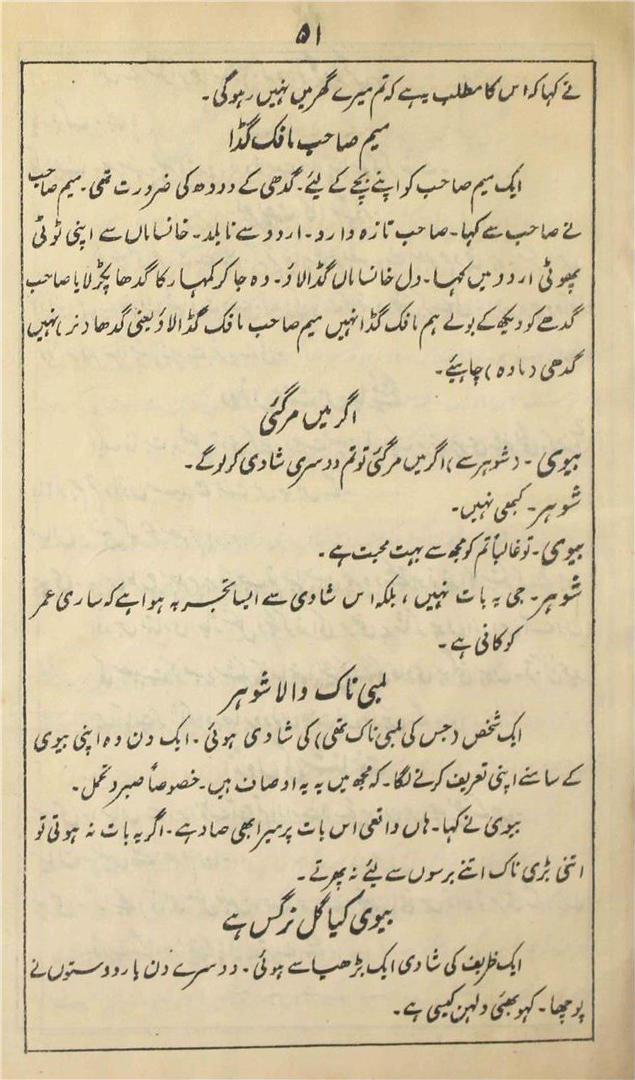 ۵۱
نے کہا کہ اس کا مطلب یہ ہے کہ تم میرے گھر میں نہیں رہوگی۔
میم صاحب مافک گڈا
ایک میم صاحب کو اپنے بچے کے لیئے۔ گدھی کے دودھ کی ضرورت تھی۔ میم صاحب
نے صاحب سے کہا۔ صاحب تازہ وارد۔ اردو سے نابلد۔ خانساماں سے اپنی ٹوٹی
پھوٹی اردو میں کہا۔ ول خانساماں گڈا لاؤ۔ وہ جا کر کمہار کا گدھا پکڑ لایا صاحب
گدھے کو دیکھ کے بولے ہم مافک گڈا نہیں میم صاحب مافک گڈا لاؤ یعنی گدھا (نر) نہیں
گدھی (مادہ) چاہیئے۔
اگر میں مرگئی
بیوی۔ (شوہر سے) اگر میں مرگئی تو تم دوسری شادی کرلوگے۔
شوہر۔ کبھی نہیں۔
بیوی۔ تو غالباً تم کو مجھ سے بہت محبت ہے۔
شوہر۔ جی یہ بات نہیں، بلکہ اس شادی سے ایسا تجربہ ہوا ہے کہ ساری عمر
کو کافی ہے۔
لمبی ناک والا شوہر
ایک شخص (جس کی لمبی ناک تھی) کی شادی ہوئی۔ ایک دن وہ اپنی بیوی
کے سامنے اپنی تعریف کرنے لگا۔ کہ مجھ میں یہ یہ اوصاف ہیں۔ خصوصاً صبر و تحمل۔
بیوی نے کہا۔ ہاں واقعی اس بات پر میرا بھی صاد ہے۔ اگر یہ بات نہ ہوتی تو
اتنی بڑی ناک اتنے برسوں سے لئے نہ پھرتے۔
بیوی کیا گل نرگس ہے
ایک ظریف کی شادی ایک بڑھیا سے ہوئی۔ دوسرے دن یار دوستوں نے
پوچھا۔ کہو بھئی دلہن کیسی ہے۔